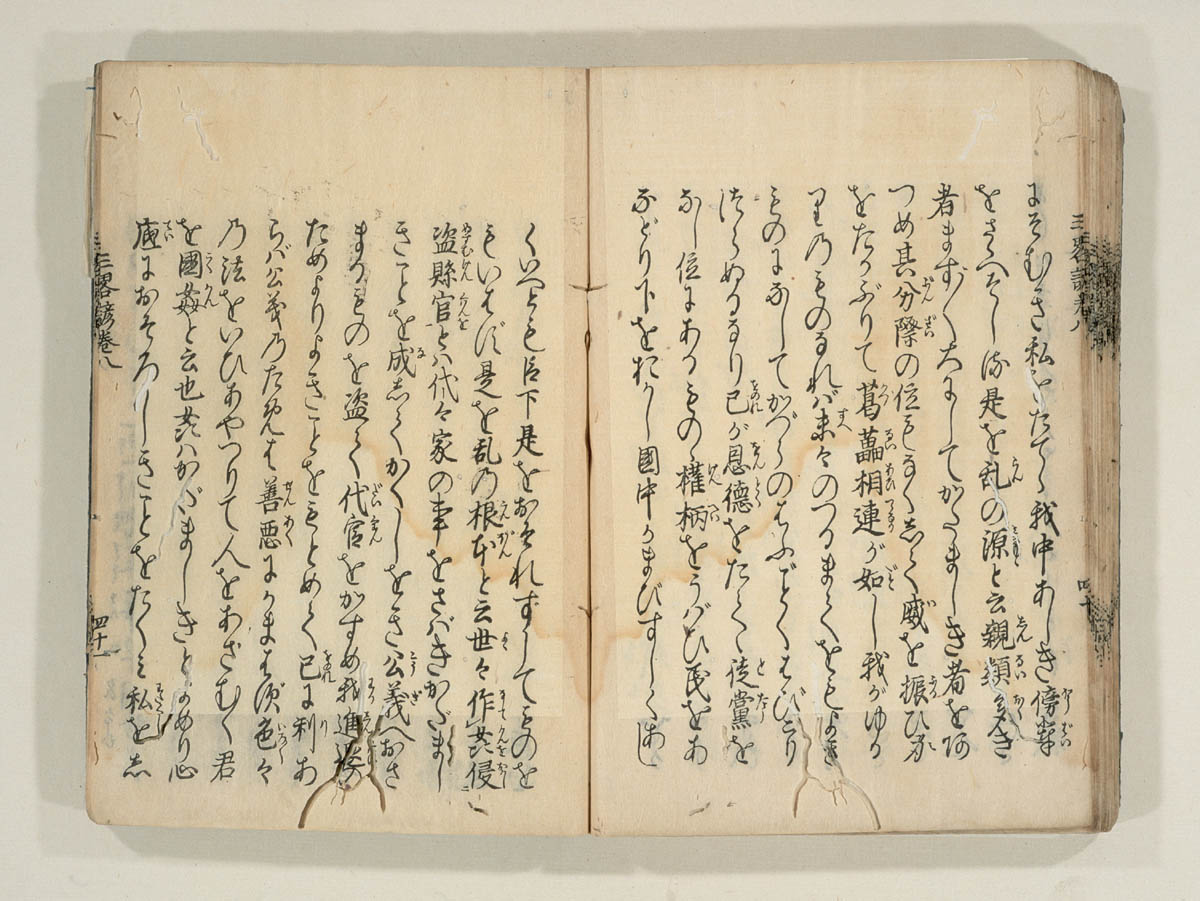 にそむき私をたてゝ我中あしき傍輩
をさゝへそしる是を乱の源と云親類
者ます〱大にしてかたましき者を
つめ其分際の位もなくして威を振ひ
をたかぶりて葛藟相連が如し我がゆか
りのものなれば末々のつるまてもよき
ものになしてかつらのはふごとくはびこり
つらぬるなり己が恩徳をたて徒黨を
なし位にあるものゝ權柄をうばひ民をあ
などり下を 國中かまびすしくあし
くいへども臣下是をおそれずしてものを
もいはず是を乱乃根本と云世々作姦侵
盗縣官とハ代々家の事をさばきかだまし
きことを成してかくしをき公義へおさ
まるものを盗て代官をかすめ我進
ためよりよきことをもとめて己に利あ
らバ公義乃ためは善悪にかまはず色々
乃法をいひあやつりて人をあざむく君
を國姦と云也姦ハかだましきとよめり心
底におそろしきことをたくミ私を
三略諺巻八
四十一
三略諺巻八
四十